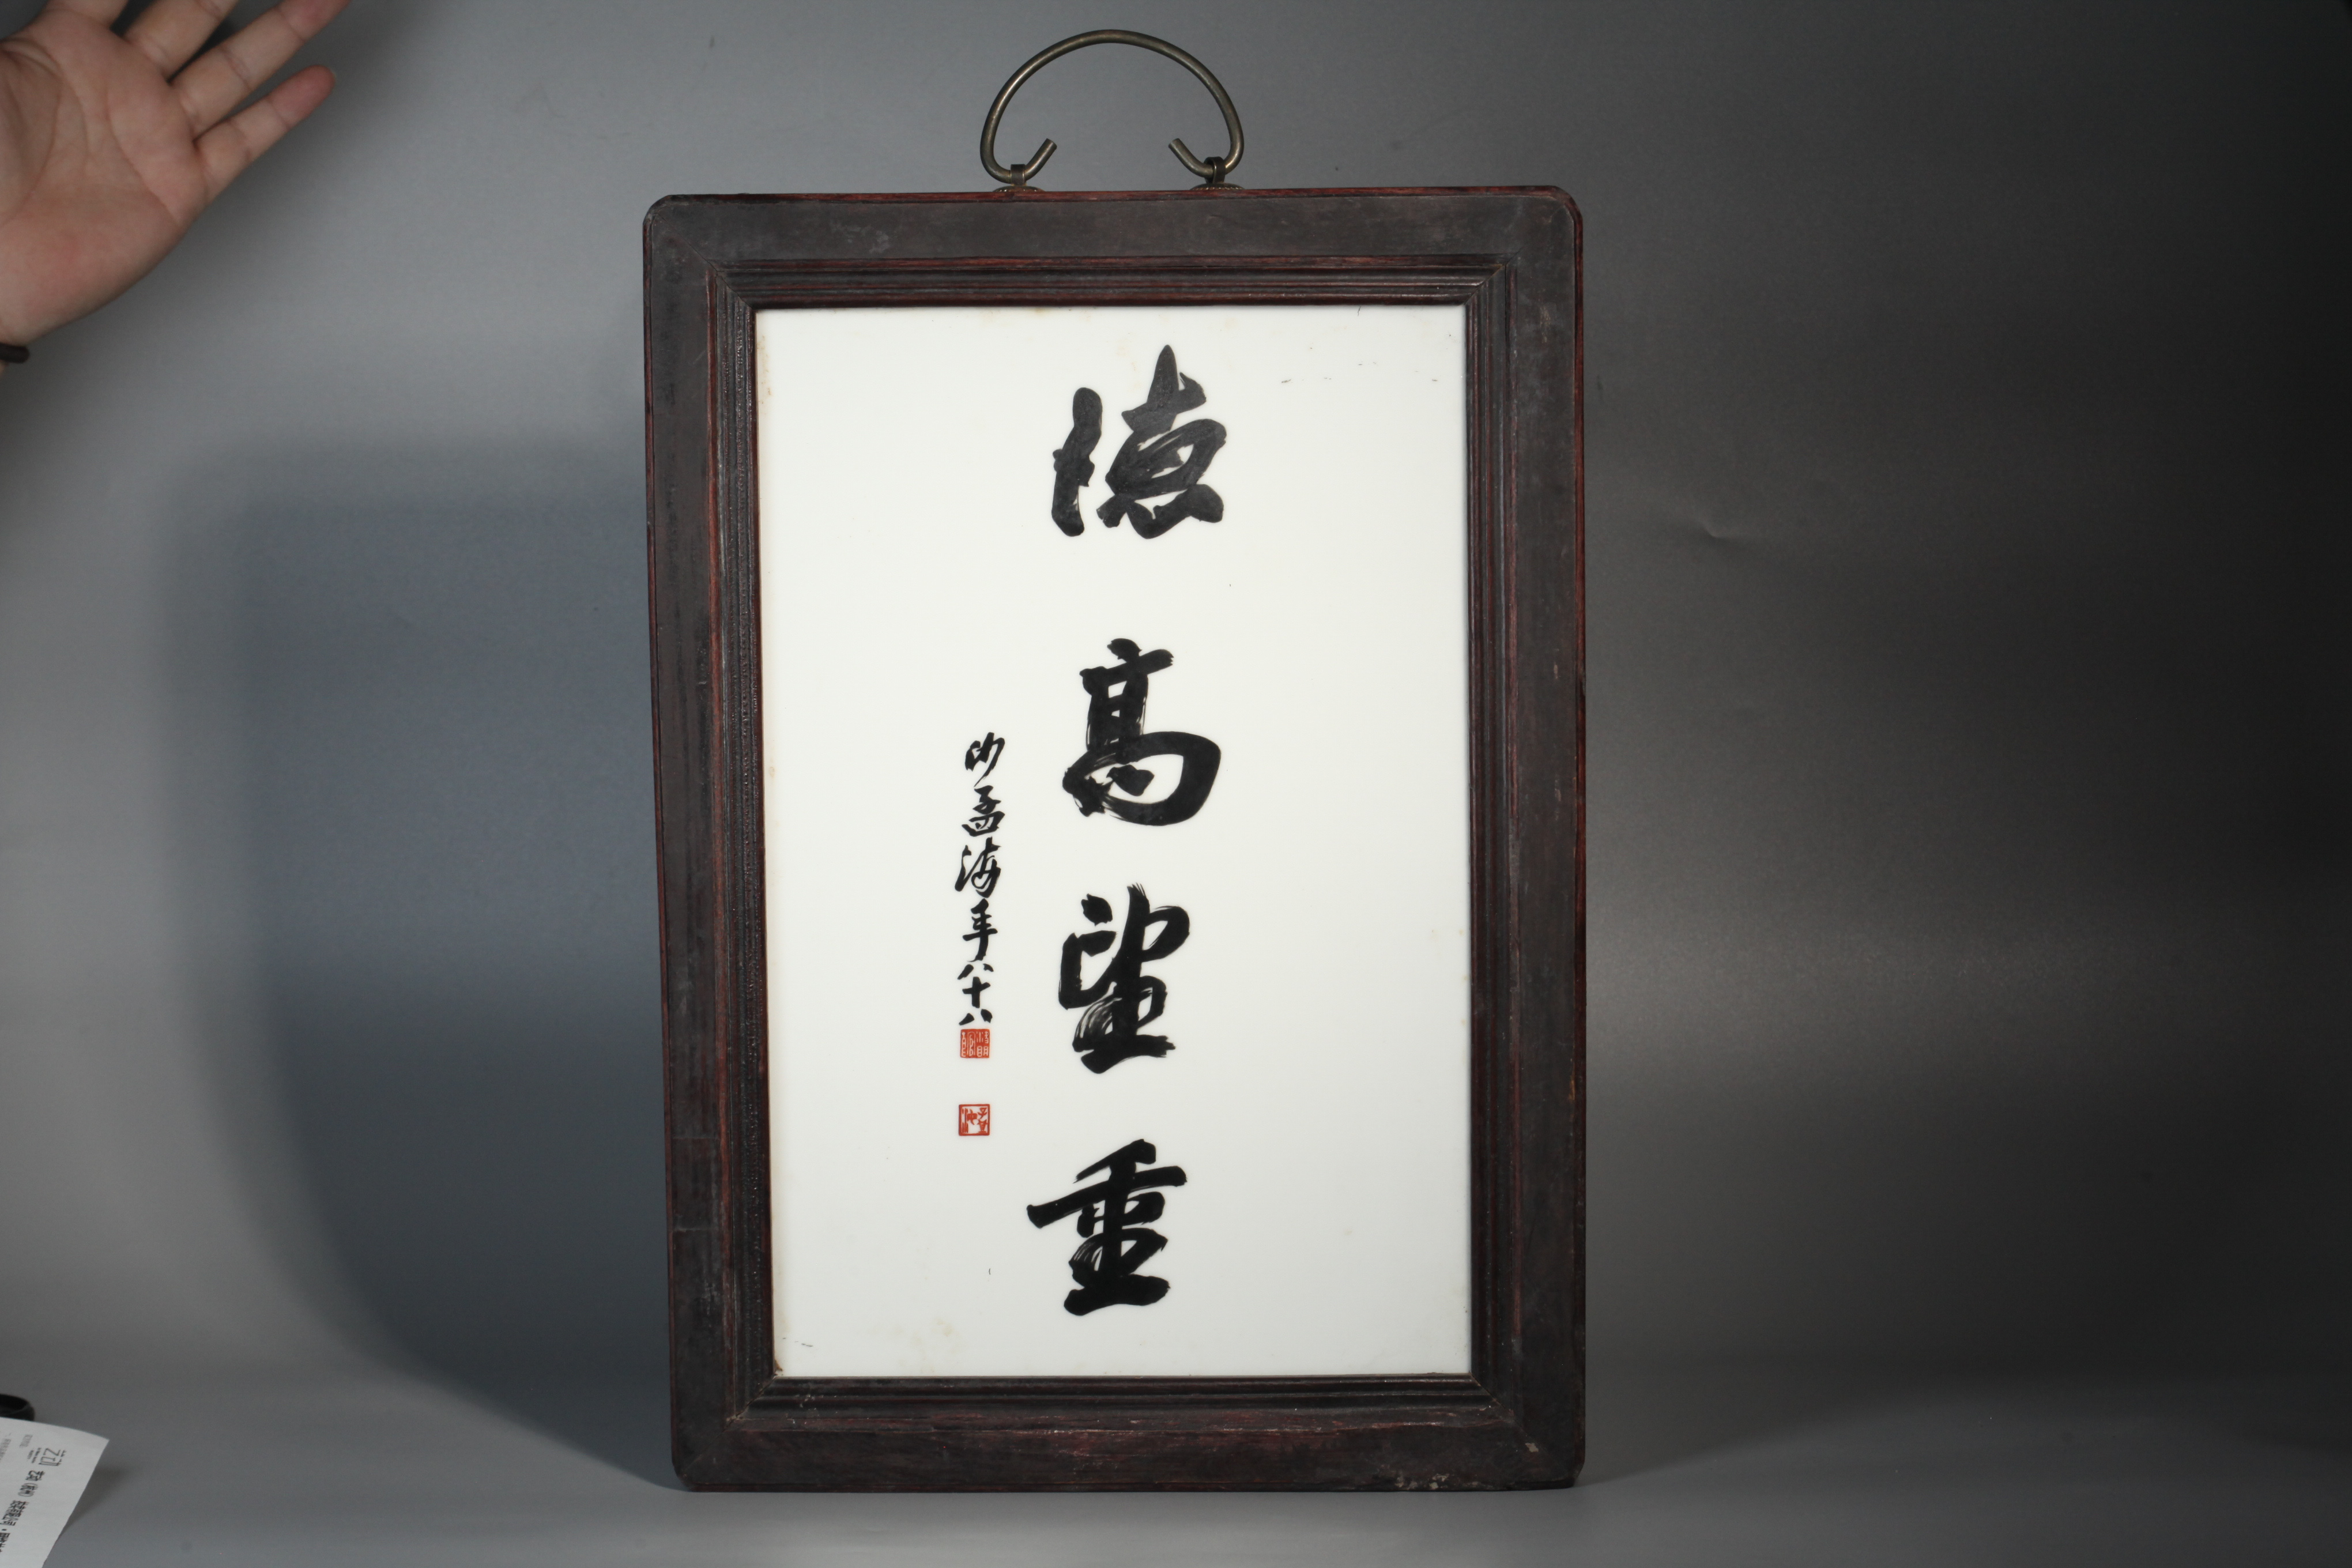 德高望重
沙孟海年八十八